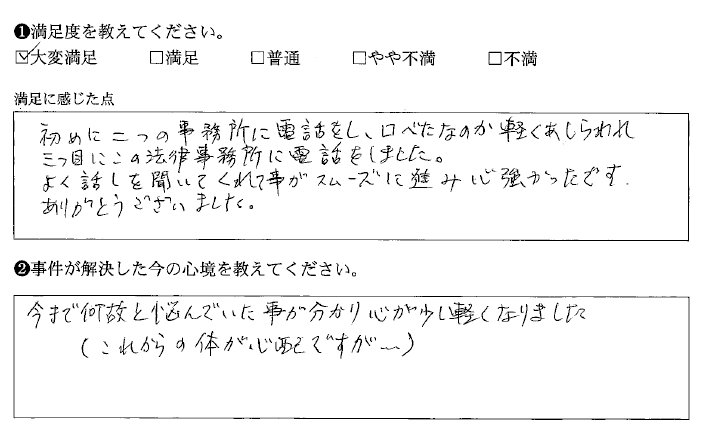 ❶満足度を教えてください。
☑大変満足 □満足 □普通 □やや不満 □不満
満足に感じた点
初めに二つの事務所に電話をし、口べたなのか軽くあしらわれ
三つ目にこの法律事務所に電話をしました。
よく話しを聞いてくれて事がスムーズに進み心強かったです.
ありがとうございました。
❷事件が解決した今の心境を教えてください。
今まで何故と悩んでいた事が分かり心が少し軽くなりました
(これからの体が心配ですが〜)